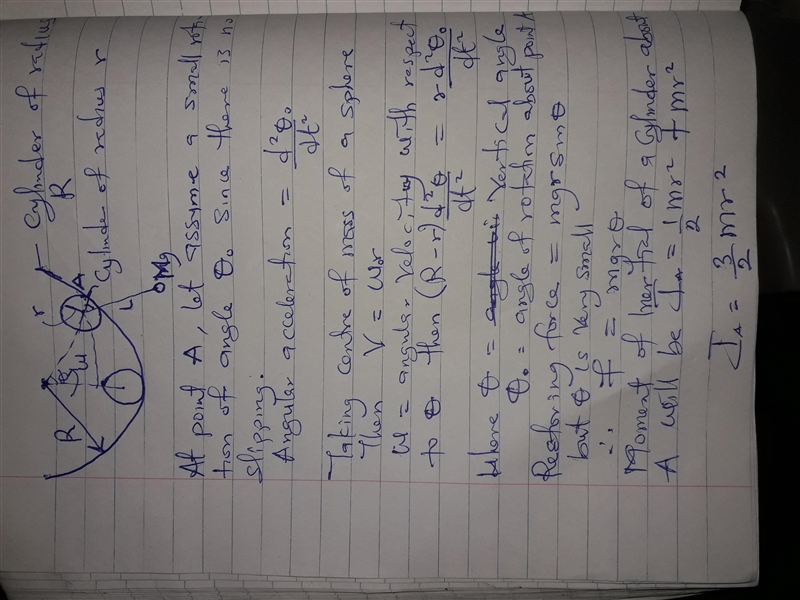 Cylinder of radius
R
Cylinder of radius r
r
A
R
θ
W
L
Mg
At point A, let assyme a small rota
tion of angle θ₀ since there is no
slipping.
Angular acceleration = d²θ₀/dt²
Taking centre of mass of a sphere
Then V = ωr
W = angular velocity with respect
to θ then (R-r) d²θ/dt² = r d²θ₀/dt²
Where θ = Vertical angle
θ₀ = angle of rotation about point A
Restoring force = mgr sinθ
but θ is very small
∴ F = mgrθ
Moment of inertia of a Cylinder about
A will be I_A = 1/2 mr² + mr²
I_A = 3/2 mr²